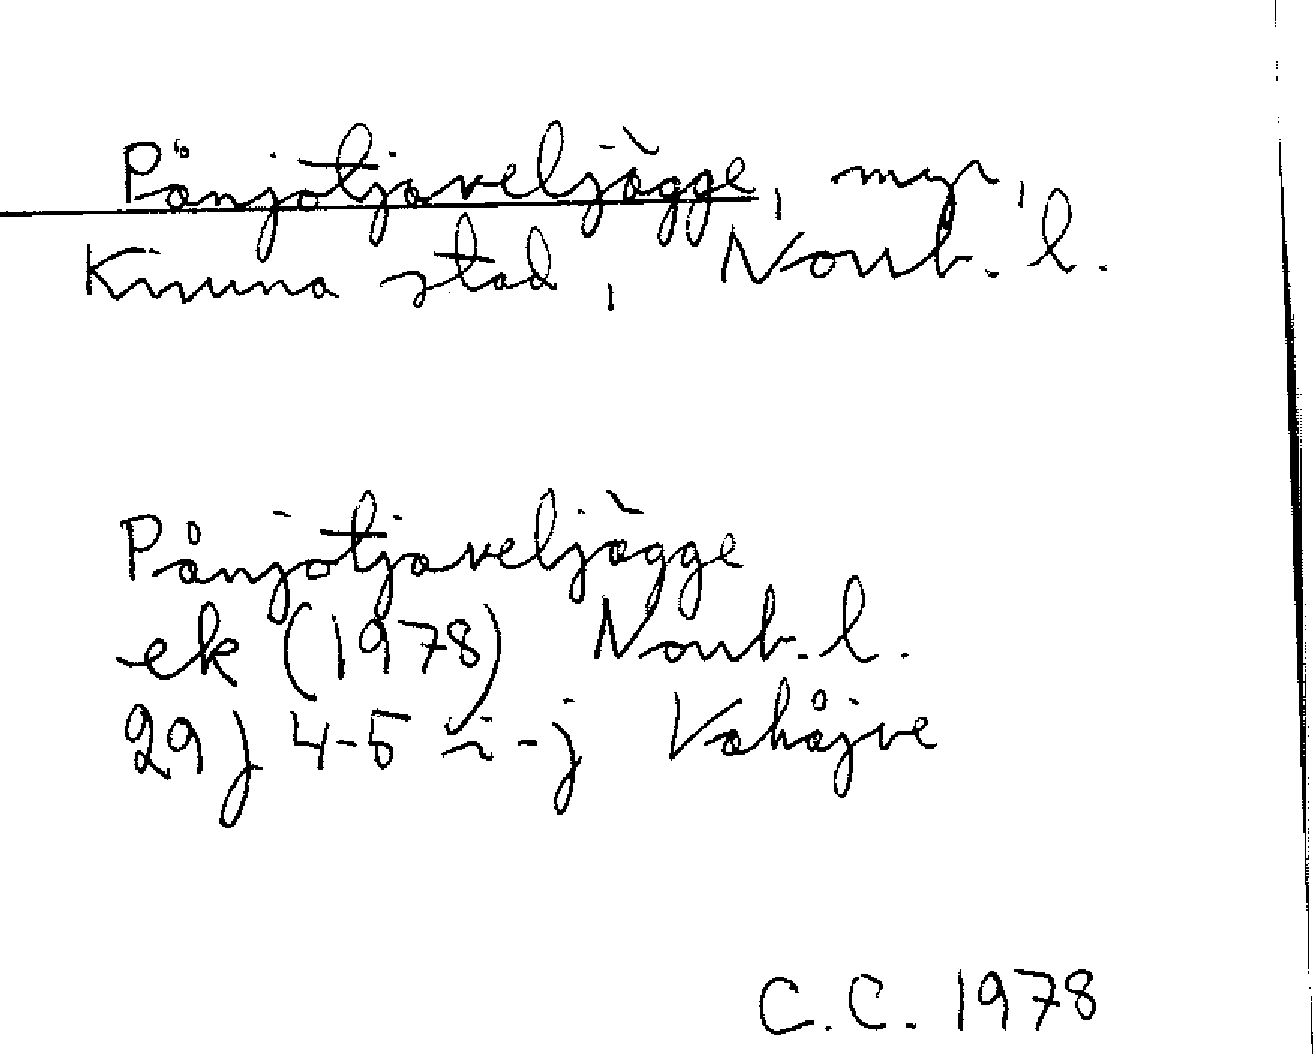 Pånjotjaveljàgge, myr,
Kiruna stad, Norrb. l.
Pånjotjaveljàgge
ek (1978) Norrb. l.
29 J 4-5 i-j Vakåjve
C.C. 1978